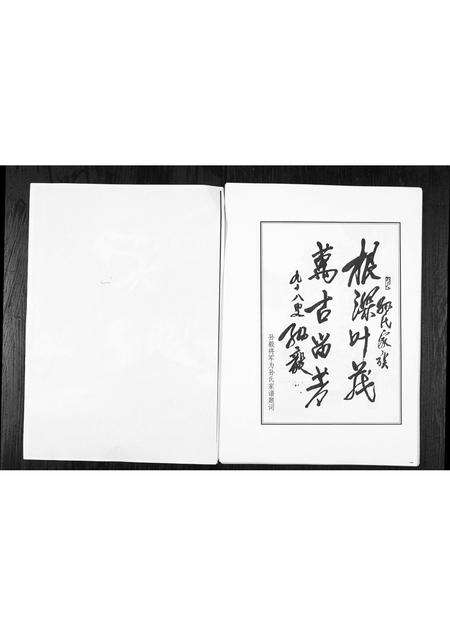 孙氏家族
根深叶茂
萬古留芳
九十八叟 孙毅
孙毅将军为孙氏家谱题词